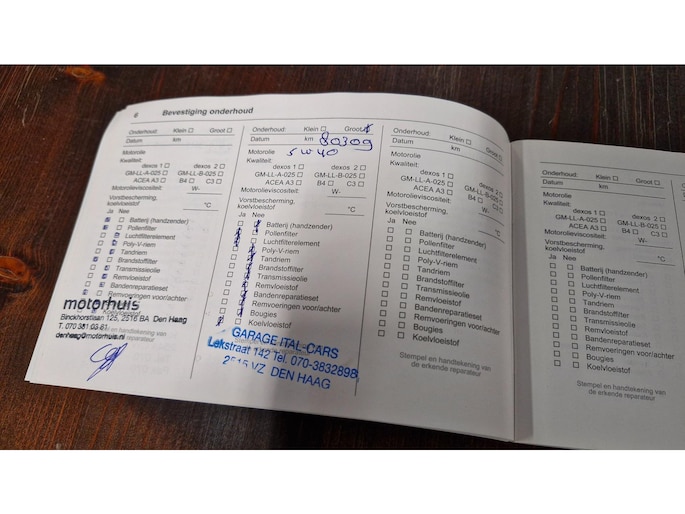 6 Bevestiging onderhoud
Onderhoud: Klein Groot
Datum km
Motorolie
Kwaliteit:
dexos 1 dexos 2
GM-LL-A-025 GM-LL-B-025
ACEA A3 B4 C3
Motorolieviscositeit: W-
Vorstbescherming,
koelvloeistof °C
Ja Nee
Batterij (handzender)
Pollenfilter
Luchtfilterelement
Poly-V-riem
Tandriem
Brandstoffilter
Transmissieolie
Remvloeistof
Bandenreparatieset
Remvoeringen voor/achter
Koelvloeistof
motorhuis
Binckhorstlaan 125, 2516 BA Den Haag
T. 070 381 03 81
denhaag@motorhuis.nl
Onderhoud: Klein Groot
Datum km 80309
Motorolie 5W40
Kwaliteit:
dexos 1 dexos 2
GM-LL-A-025 GM-LL-B-025
ACEA A3 B4 C3
Motorolieviscositeit: W-
Vorstbescherming,
koelvloeistof °C
Ja Nee
Batterij (handzender)
Pollenfilter
Luchtfilterelement
Poly-V-riem
Tandriem
Brandstoffilter
Transmissieolie
Remvloeistof
Bandenreparatieset
Remvoeringen voor/achter
Bougies
Koelvloeistof
GARAGE ITAL-CARS
Lekstraat 142 Tel. 070-3832898
2515 VZ DEN HAAG
Onderhoud: Klein Groot
Datum km
Motorolie
Kwaliteit:
dexos 1 dexos 2
GM-LL-A-025 GM-LL-B-025
ACEA A3 B4 C3
Motorolieviscositeit: W-
Vorstbescherming,
koelvloeistof °C
Ja Nee
Batterij (handzender)
Pollenfilter
Luchtfilterelement
Poly-V-riem
Tandriem
Brandstoffilter
Transmissieolie
Remvloeistof
Bandenreparatieset
Remvoeringen voor/achter
Bougies
Koelvloeistof
Stempel en handtekening van
de erkende reparateur
Onderhoud: Klein Groot
Datum km
Motorolie
Kwaliteit:
dexos 1 dexos 2
GM-LL-A-025 GM-LL-B-025
ACEA A3 B4 C3
Motorolieviscositeit: W-
Vorstbescherming,
koelvloeistof °C
Ja Nee
Batterij (handzender)
Pollenfilter
Luchtfilterelement
Poly-V-riem
Tandriem
Brandstoffilter
Transmissieolie
Remvloeistof
Bandenreparatieset
Remvoeringen voor/achter
Bougies
Koelvloeistof
Stempel en handtekening van
de erkende reparateur